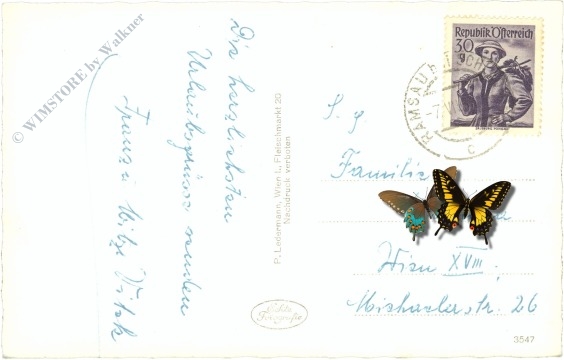 © WIMSTORE by Walkner
Die herzlichsten
Urlaubsgrüsse senden
Franz u Mitzi
P. Ledermann, Wien I., Fleischmarkt 20
Nachdruck verboten
Echte
Fotografie
Republik Österreich
30
g
RAMSAU
C
S. g
Familie
Wien XVIII.
Michaelerstr. 26
3547